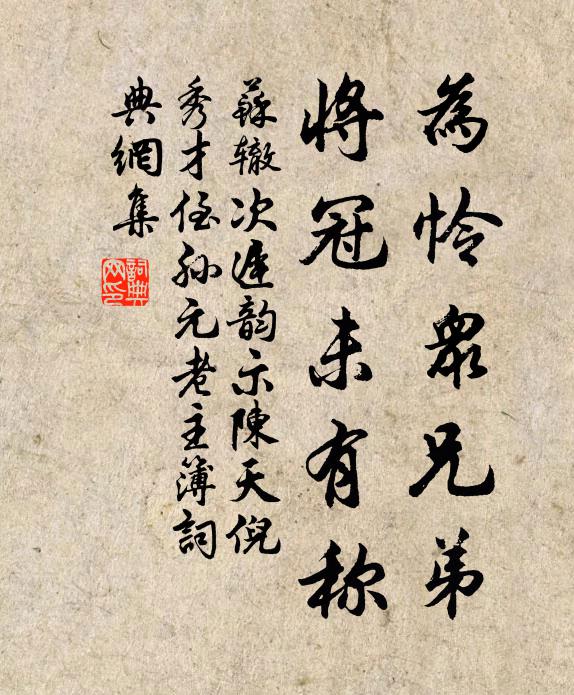 為怜眾兄弟
將冠未有称
蘇辙次遲韵示陳天倪
秀才侄孙元老主簿詞
典網集
詞典
网印